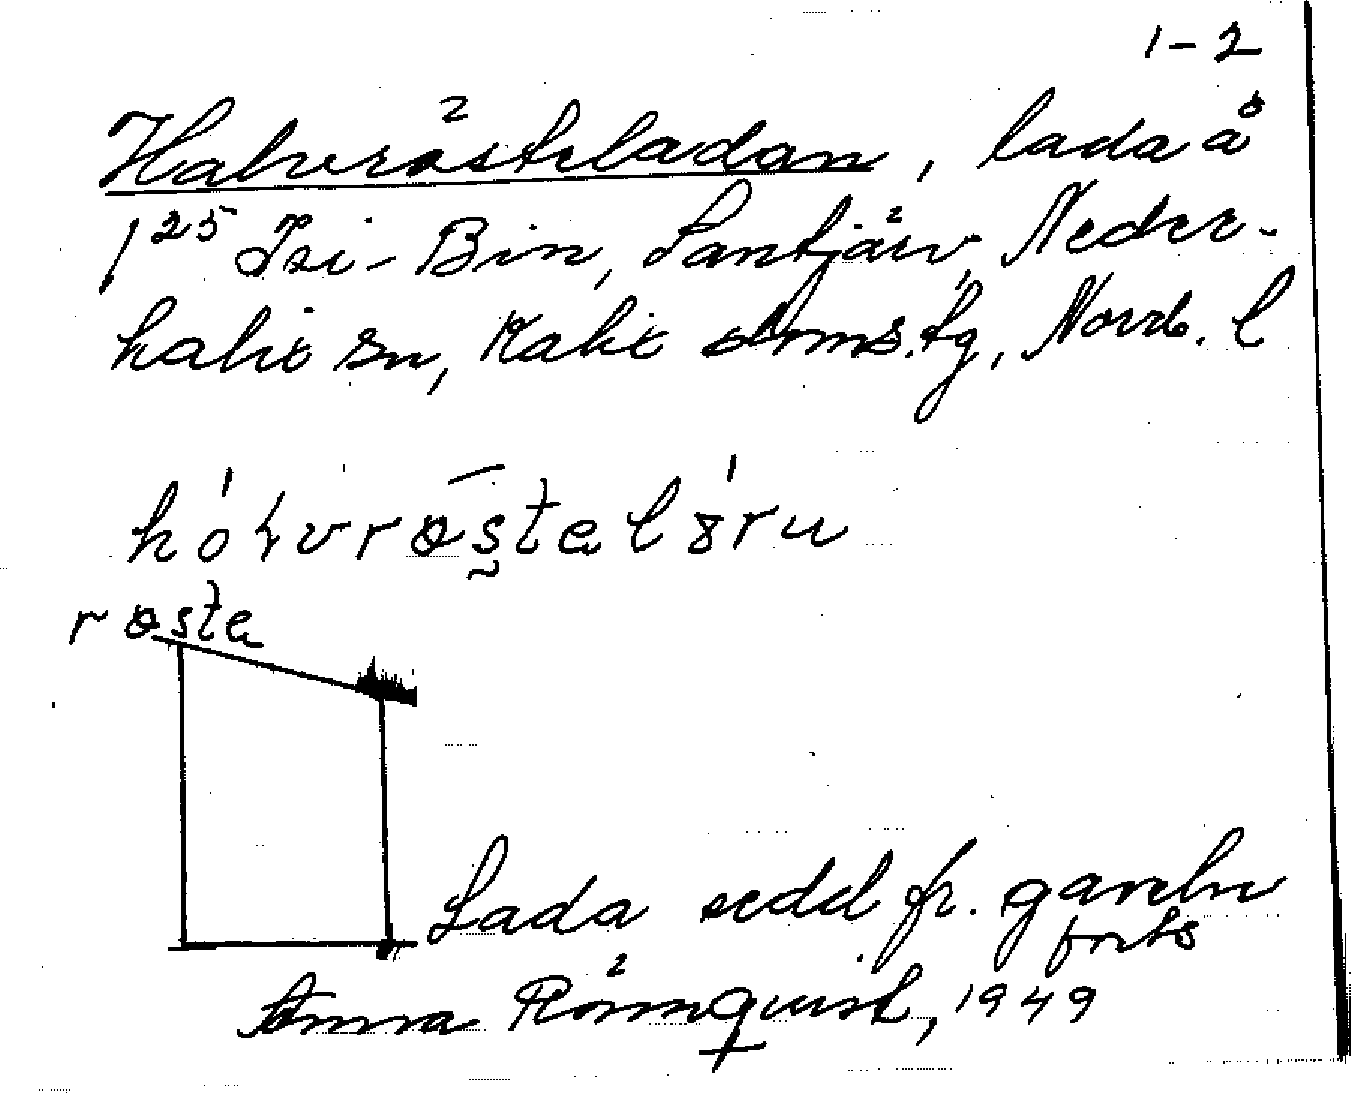 1-2
Halvrösteladan, lada å
1²⁵ Isi-Bin, Santjärv, Neder-
kalix sn, Kalix skms.tg, Norrb. l
röste
Lada sedd fr. gaveln
forts
Anna Rönnquist, 1949